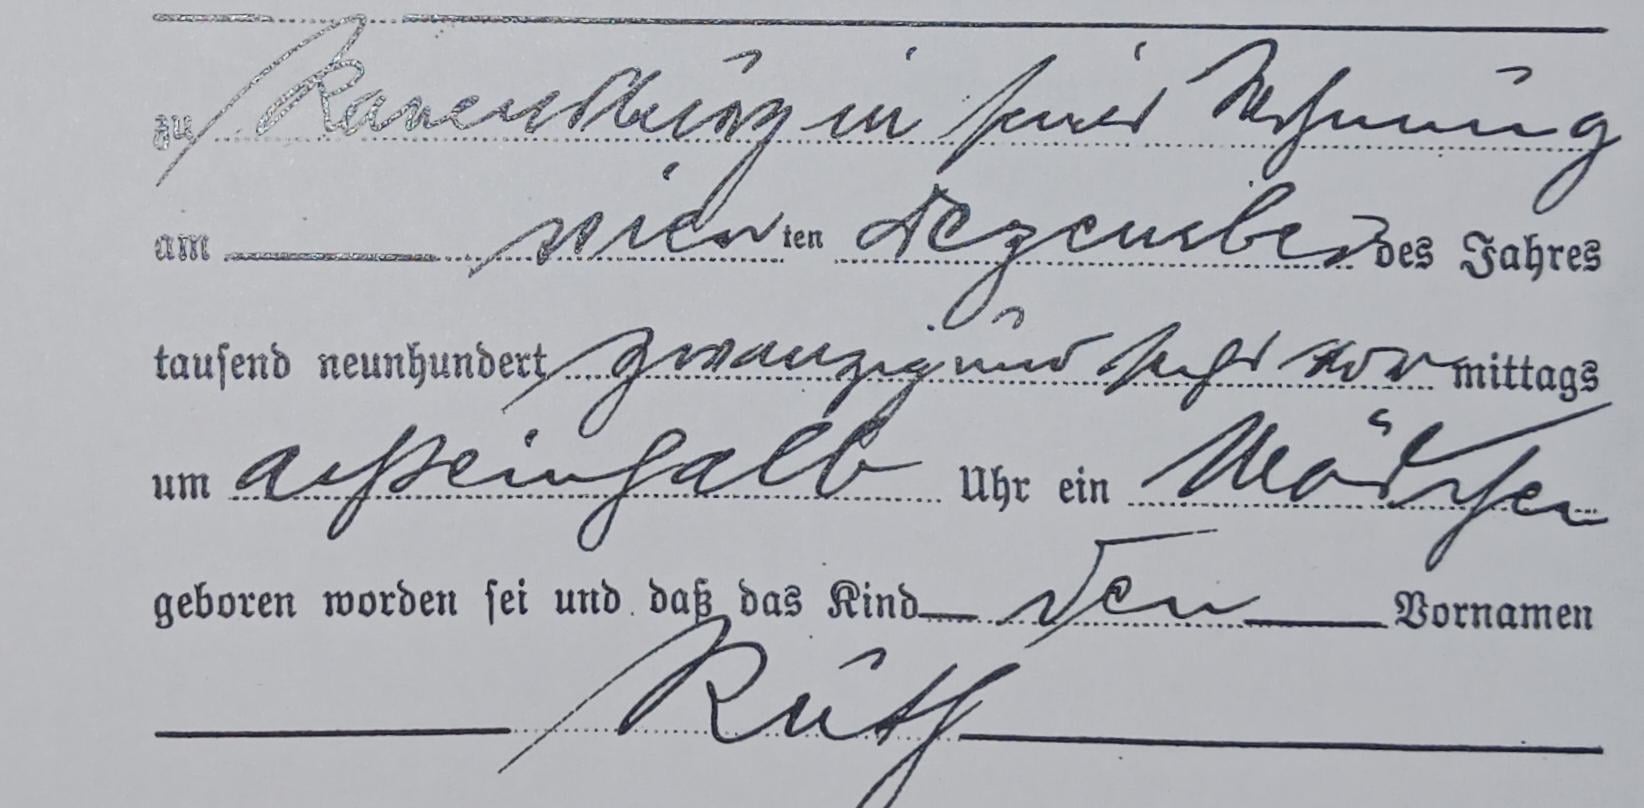 zu Ravensburg in seiner Wohnung
am vierten Dezember des Jahres
tausend neunhundert zwanzig und sechs vormittags
um achteinhalb Uhr ein Mädchen
geboren worden sei und daß das Kind den Vornamen
Ruth